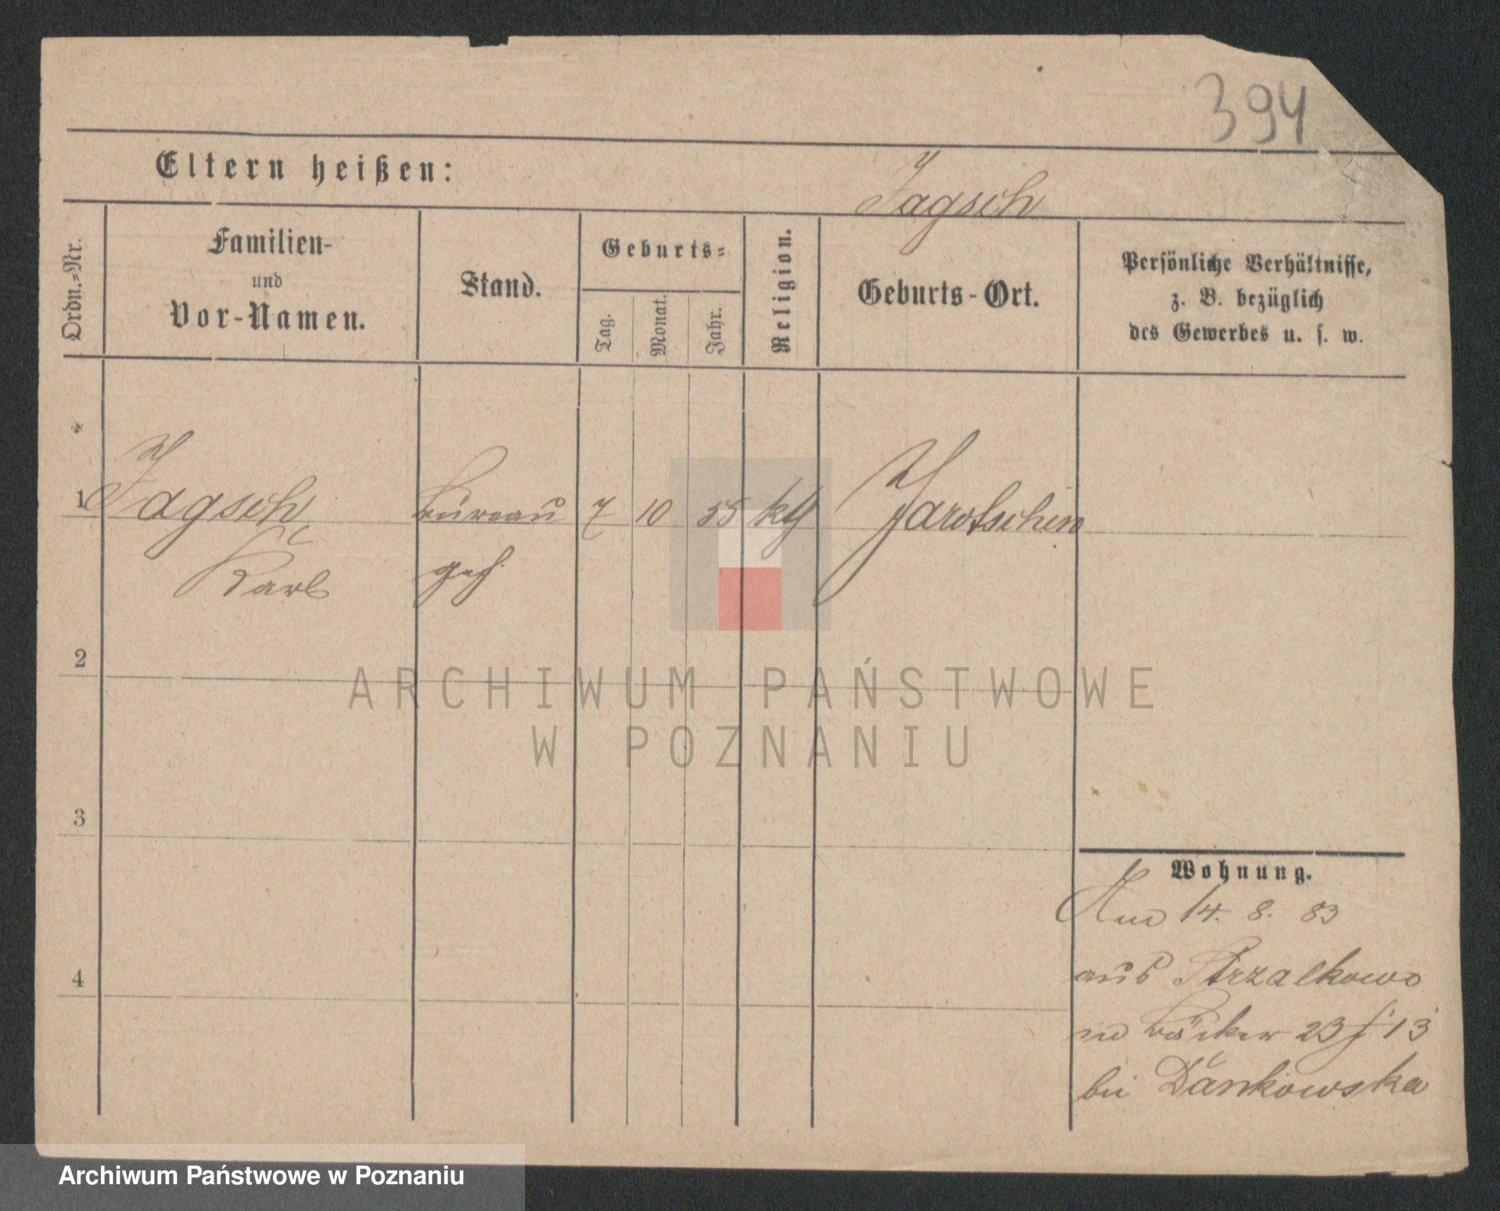 394
Eltern heißen:
Jagsch
Ordn.=Nr.
Familien-
und
Vor-Namen.
Stand.
Geburts=
Tag.
Monat.
Jahr.
Religion.
Geburts-Ort.
Persönliche Verhältnisse,
z. B. bezüglich
des Gewerbes u. s. w.
1 Jagsch Büreau 7 10 55 kth Jarotschin
Karl geh.
2
3
4
Wohnung.
14. 8. 83
aus Strzalkowo
Bäcker 23 13
bei Dankowska
ARCHIWUM PAŃSTWOWE
W POZNANIU
Archiwum Państwowe w Poznaniu